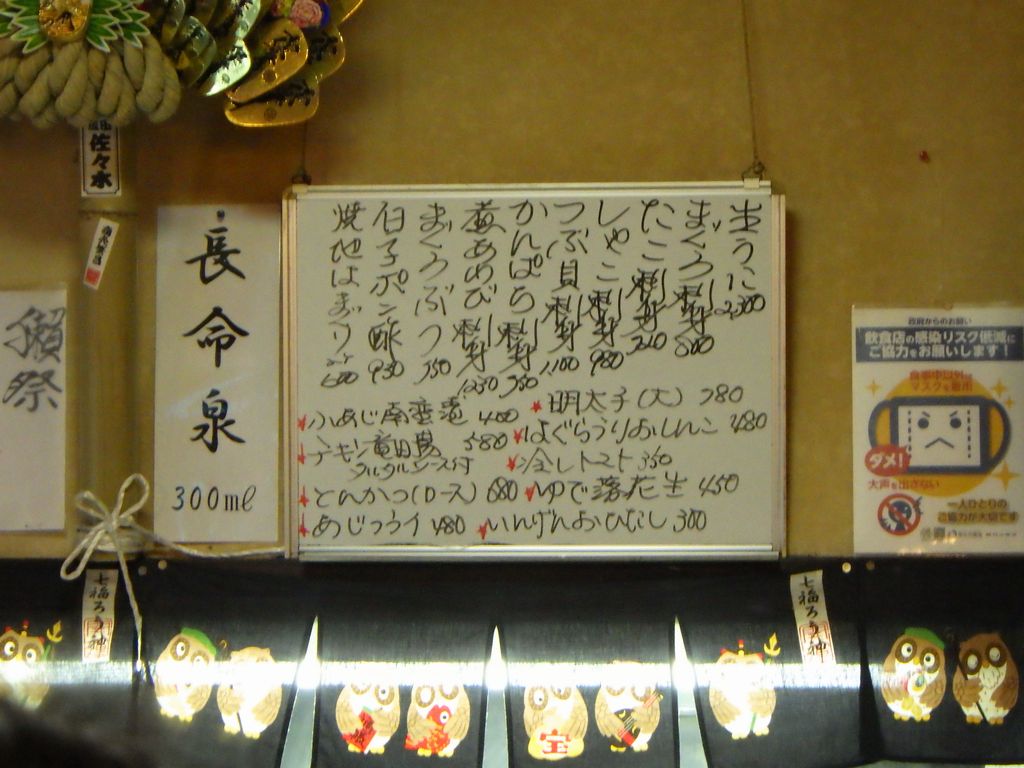 佐々木
獺祭
長命泉
300ml
生うに 2,300
まぐろ刺身 800
たこ刺身
しゃこ刺身 980
つぶ貝刺身 1,100
かんぱち刺身
煮あわび
まぐろぶつ
白子ポン酢 930
焼地はまぐり
小あじ南蛮漬 400
チキン竜田揚 580
タルタルソース付
とんかつ(ロース) 680
あじフライ 480
明太子(大) 380
はぐらうりおしんこ 480
冷しトマト 350
ゆで落花生 450
いんげんおひたし 300
政府からのお願い
飲食店の感染リスク低減に
ご協力をお願いします！
食事中以外は
マスクを着用
ダメ!
大声を出さない
一人ひとりの
ご協力が大切です
七福ろう神
七福ろう神
宝